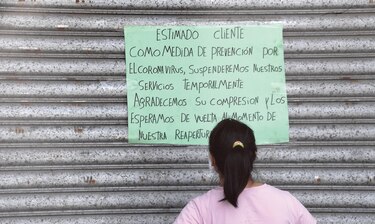 ESTIMADO CLIENTE
COMO MEDIDA DE PREVENCIÓN POR
EL CORONVIRUS, SUSPENDEREMOS NUESTROS
SERVICIOS TEMPORALMENTE
AGRADECEMOS SU COMPRESION Y LOS
ESPERAMOS DE VUELTA AL MOMENTO DE
NUESTRA REAPERTUR